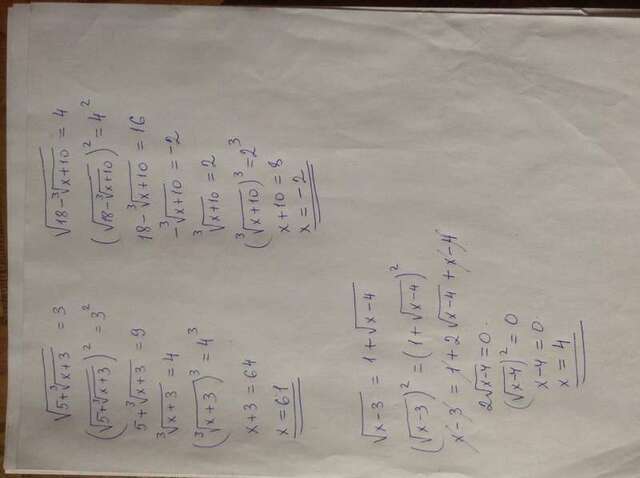 √(5+∛(x+3)) = 3
(√(5+∛(x+3)))² = 3²
5+∛(x+3) = 9
∛(x+3) = 4
(∛(x+3))³ = 4³
x+3 = 64
x = 61
√(18-∛(x+10)) = 4
(√(18-∛(x+10)))² = 4²
18-∛(x+10) = 16
-∛(x+10) = -2
∛(x+10) = 2
(∛(x+10))³ = 2³
x+10 = 8
x = -2
√(x-3) = 1+√(x-4)
(√(x-3))² = (1+√(x-4))²
x-3 = 1+2√(x-4)+x-4
2√(x-4) = 0
(√(x-4))² = 0
x-4 = 0
x = 4